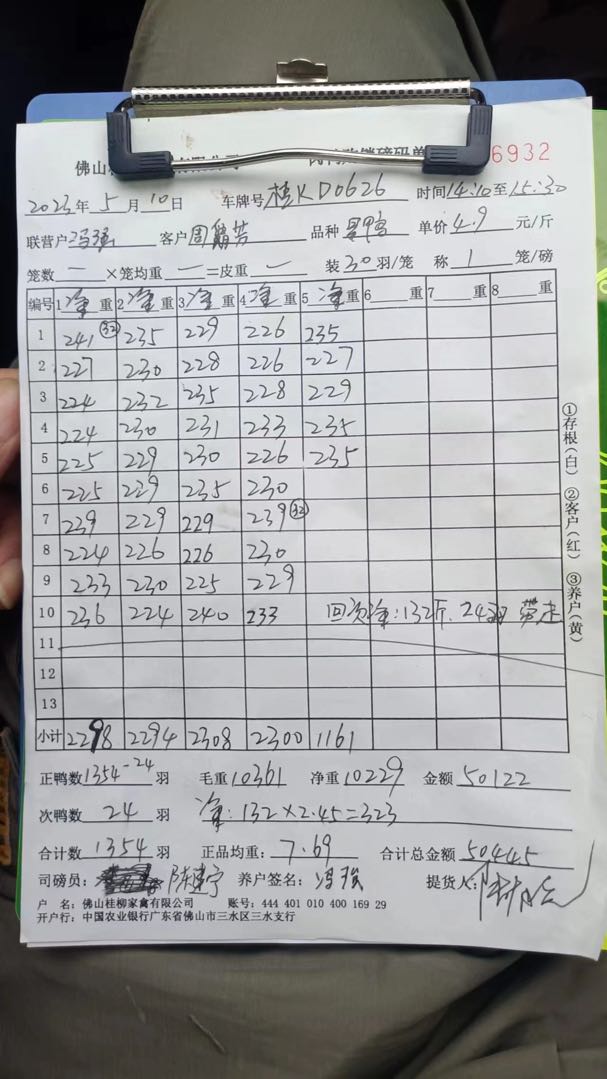 佛山桂 6932
2023年5月10日 车牌号 桂KD0626 时间14:10至15:30
联营户 冯强 客户 周 芳 品种 鸭 单价 4.9 元/斤
笼数 一 ×笼均重 一 =皮重 装 30 羽/笼 称 1 笼/磅
编号 1 净 重 2 净 重 3 净 重 4 净 重 5 净 重 6 重 7 重 8 重
1 241 (32) 235 229 226 235
2 227 230 228 226 227
3 224 232 235 228 229
4 224 230 231 233 235
5 225 229 230 226 235
6 225 229 235 230
7 239 229 229 239 (32)
8 224 226 226 230
9 233 230 225 229
10 236 224 240 233 回次净:132斤.24羽 带走
11
12
13
小计 2298 2294 2308 2300 1161
正鸭数 1354-24 羽 毛重 10361 净重 10229 金额 50122
次鸭数 24 羽 净:132×2.45=323
合计数 1354 羽 正品均重: 7.69 合计总金额 50445
司磅员: 陈建宁 养户签名: 冯强 提货人:
户 名: 佛山桂柳家禽有限公司 账号: 444 401 010 400 169 29
开户行: 中国农业银行广东省佛山市三水区三水支行
①存根(白) ②客户(红) ③养户(黄)